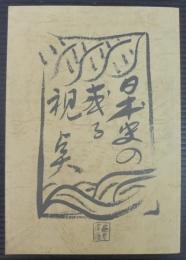 日本史の
或る
視点